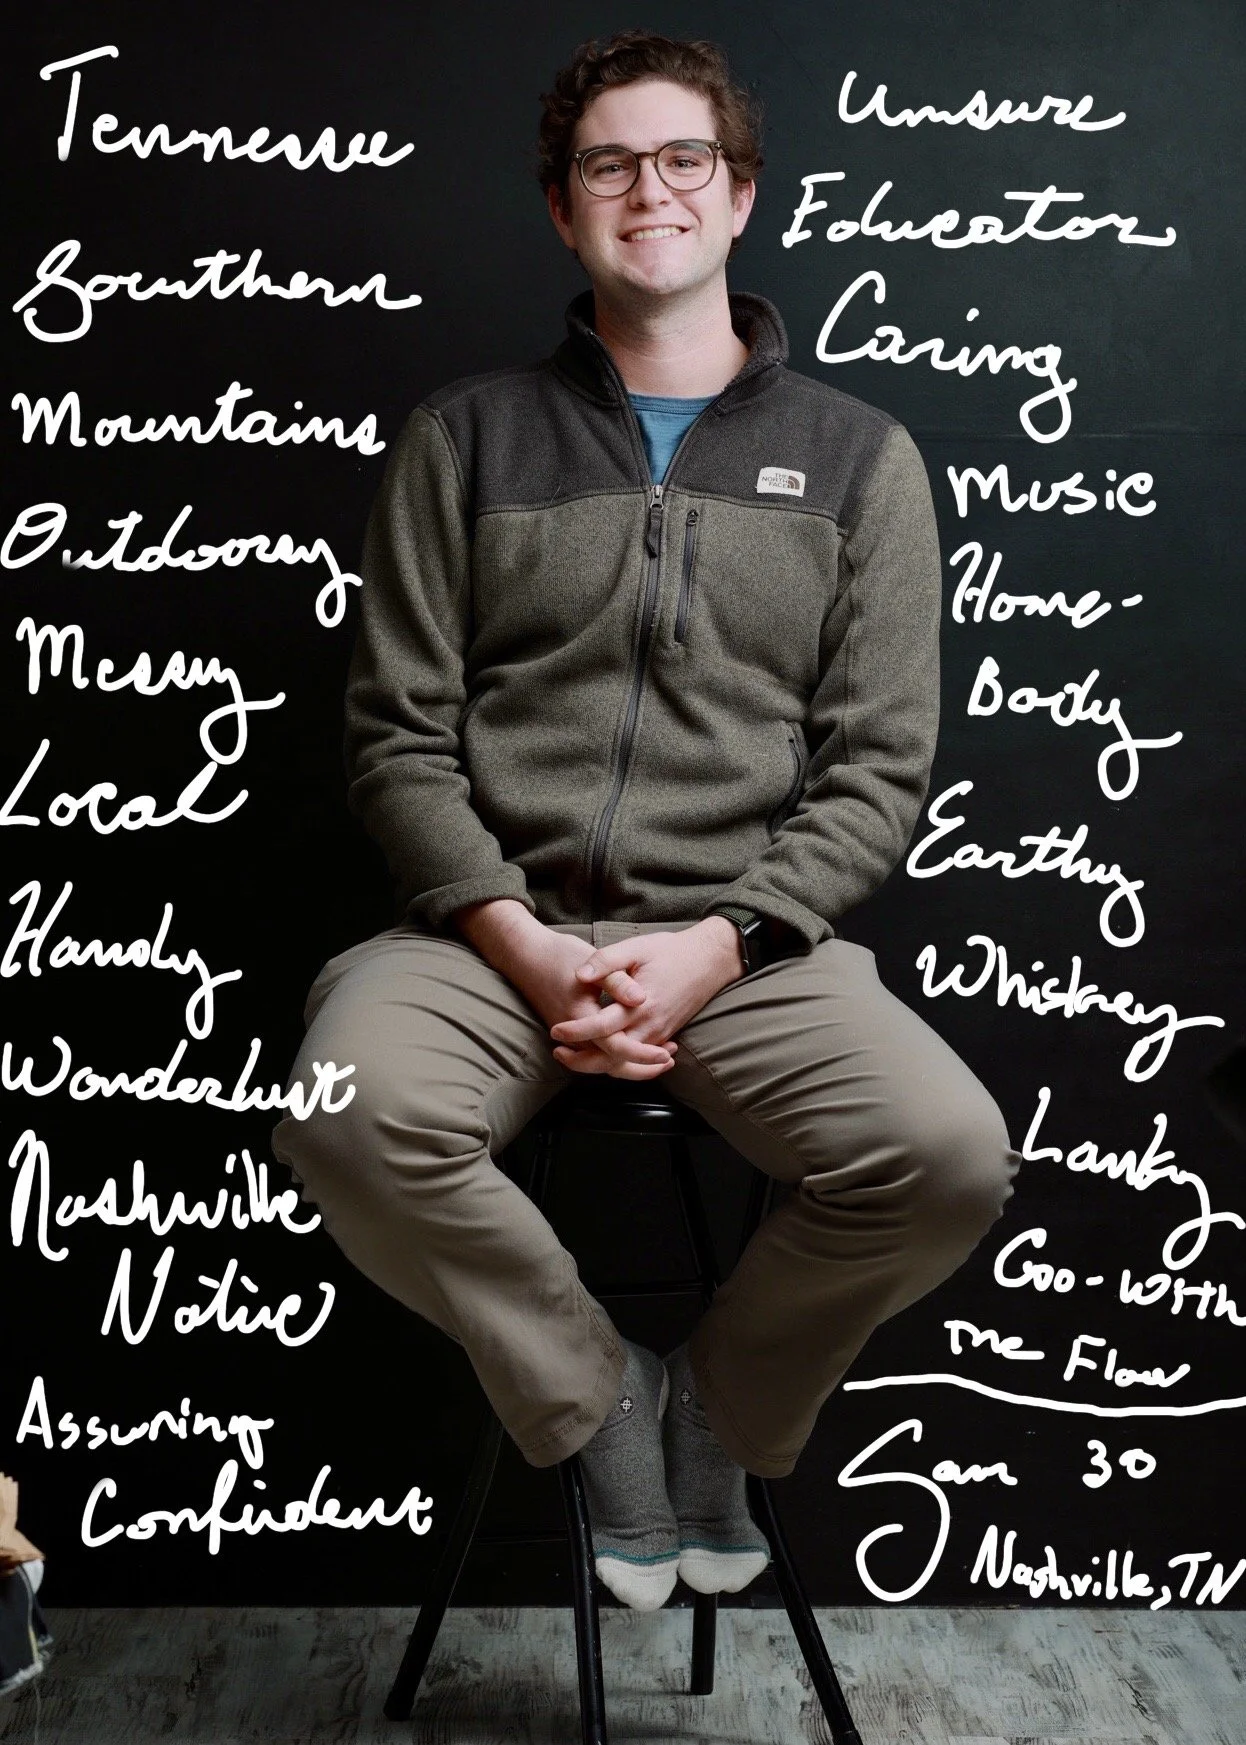 Tennessee
Southern
Mountains
Outdoorsy
Messy
Local
Handy
Wonderlust
Nashville
Native
Assuring
Confident
Unsure
Educator
Caring
THE
NORTH
FACE
Music
Home-
Body
Earthy
Whiskey
Lanky
Goo-with
the Flow
Sam 30
Nashville, TN